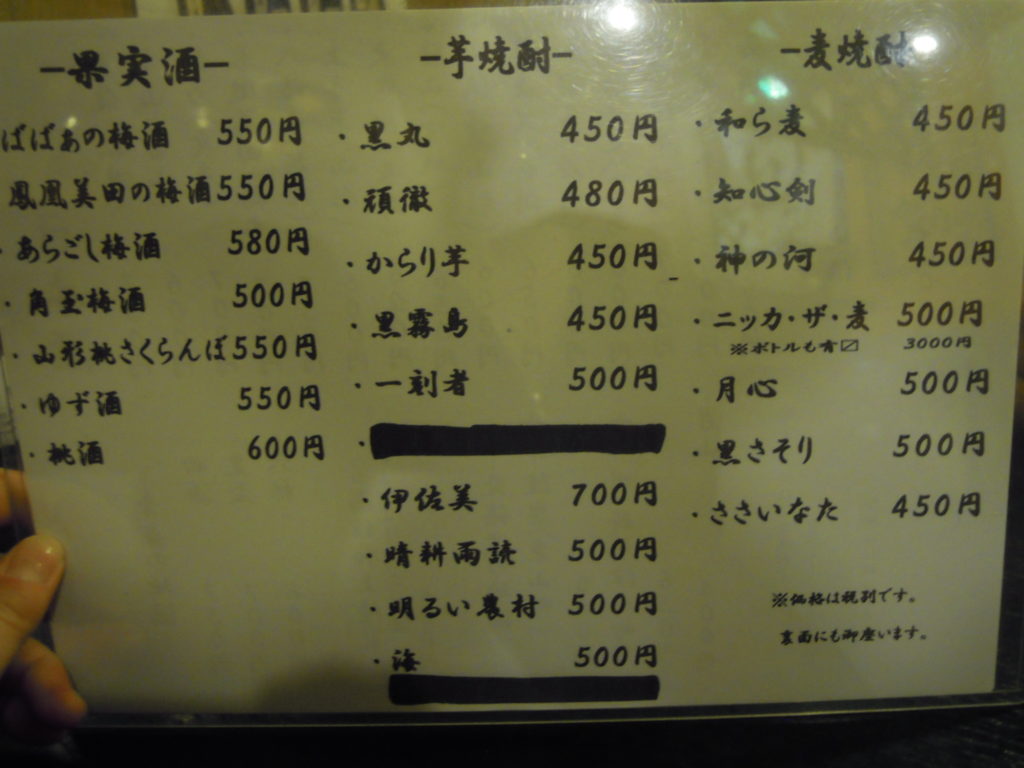 －果実酒－
ばばぁの梅酒 550円
鳳凰美田の梅酒 550円
・あらごし梅酒 580円
・角玉梅酒 500円
・山形桃さくらんぼ 550円
・ゆず酒 550円
・桃酒 600円
－芋焼酎－
・黒丸 450円
・頑徹 480円
・からり芋 450円
・黒霧島 450円
・一刻者 500円
・伊佐美 700円
・晴耕雨読 500円
・明るい農村 500円
・海 500円
－麦焼酎
・和ら麦 450円
・知心剣 450円
・神の河 450円
・ニッカ・ザ・麦 500円
※ボトルも有〼 3000円
・月心 500円
・黒さそり 500円
・ささいなた 450円
※価格は税別です。
裏面にも御座います。